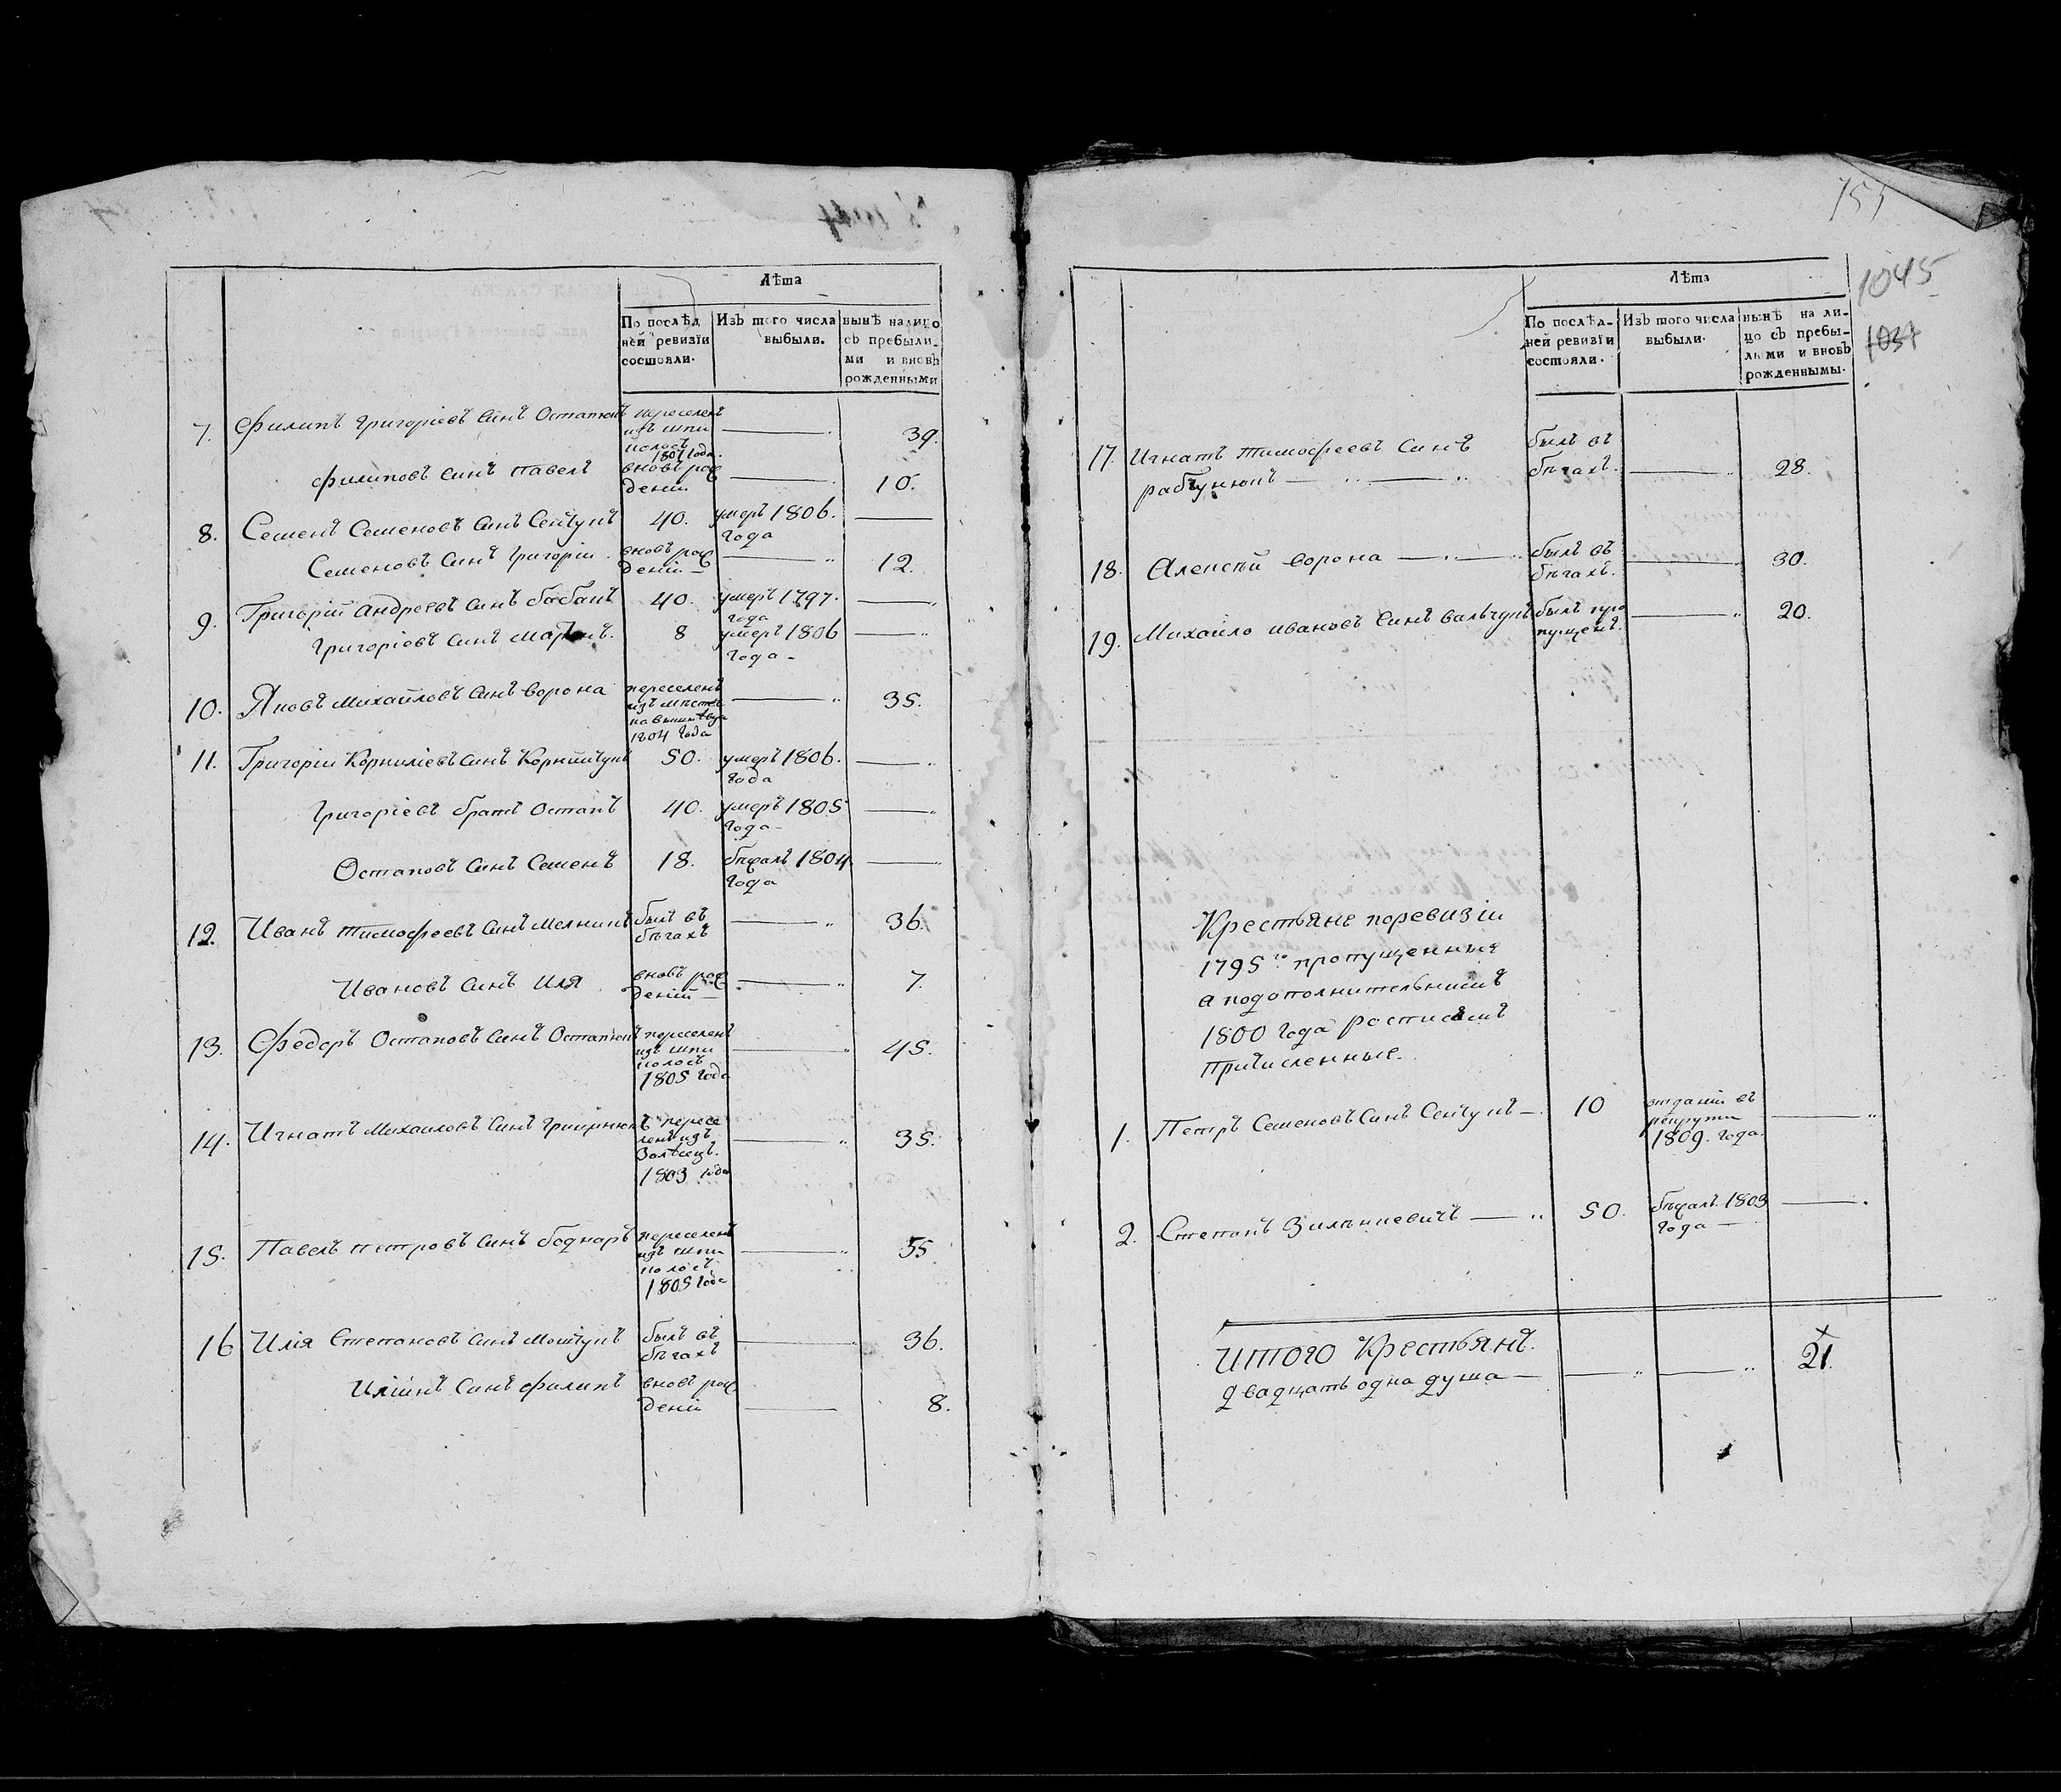 Лѣта
По послѣд
ней ревизїи
состояли.
Изъ того числа
выбыли.
нынѣ налицо
съ прибыли_
ми и вновь
рожденными
7. Филипъ Григорїевъ Синъ Остапюкъ переселенъ
изъ шпи
колосъ
1807 года. 39.
Филиповъ Синъ Павелъ вновь рож
денїи 10.
8. Семенъ Семеновъ Синъ Сенчукъ 40. умеръ 1806.
года
Семеновъ Синъ Григорїи вновь рож
денїи 12.
9. Григорїй Андреевъ Синъ бабакъ 40. умеръ 1797.
года
Григорїевъ Синъ 8 умеръ 1806
года
10. Яковъ Михайловъ Синъ Ворона переселенъ
изъ
1804 года 35.
11. Григорїи Корнилїевъ Синъ 50. умеръ 1806.
года
Григорїевъ братъ Остапъ 40. умеръ 1805
года
Остаповъ Синъ Семенъ 18. бѣжалъ 1804
года
12. Иванъ Тимофеевъ Синъ Мелникъ былъ въ
бѣгахъ 36.
Ивановъ Синъ Илїя вновь рож
денїй 7.
13. Федоръ Остаповъ Синъ Остапюкъ переселенъ
изъ шпи
колосъ
1805 года 45.
14. Игнатъ Михаиловъ Синъ пересе
ленъ изъ
1803 года 35.
15. Павелъ Петровъ Синъ боднаръ переселенъ
изъ шпи
колосъ
1805 года 55
16 Илїя Степановъ Синъ былъ въ
бѣгахъ 36.
Илїинъ Синъ Филипъ вновь рож
денїи 8.
1045
1037
Лѣта
По послѣд-
ней ревизїи
состояли.
Изъ того числа
выбыли.
нынѣ на ли-
цо съ прибы-
лыми и вновь
рожденнымы.
17. Игнатъ Тимофеевъ Синъ былъ въ
бѣгахъ. 28.
18. Алексѣй Ворона былъ въ
бѣгахъ. 30.
19. Михайло Ивановъ Синъ Вальчукъ былъ про
пущенъ. 20.
Крестьяне поревизїи
1795го пропущенные
а подополнительнимъ
1800 года
причисленные.
1. Петръ Семеновъ Синъ Сенчукъ 10 отданїи въ
рекруты
1809. года.
2. Степанъ 50. бѣжалъ 1803
года
Итого Крестьянъ.
двадцать одна душа 21.